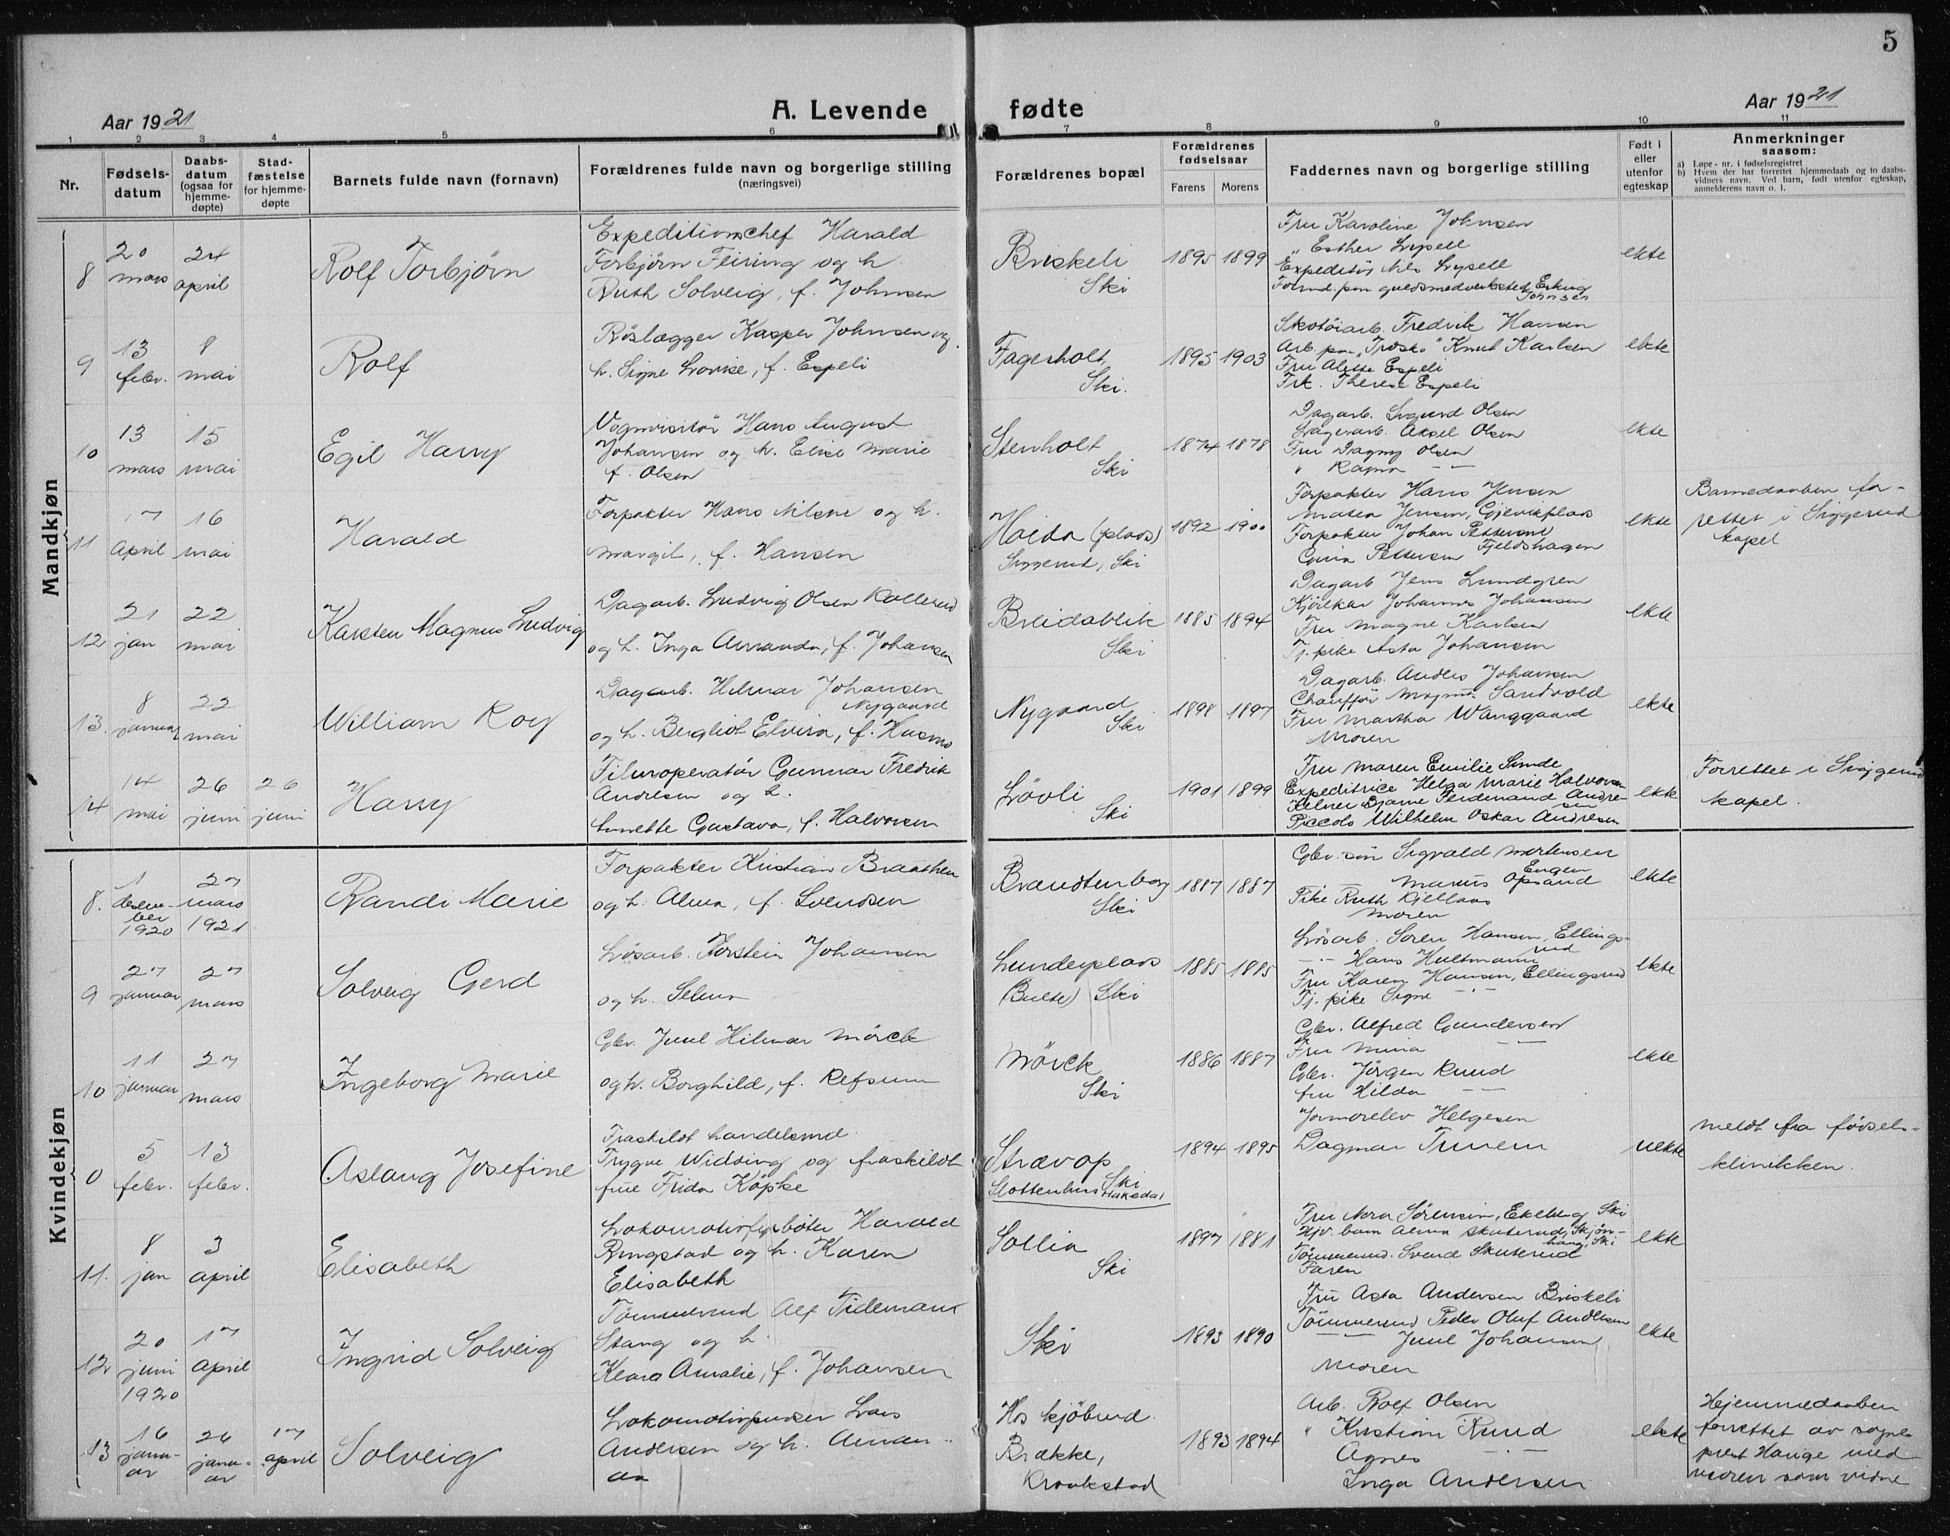 5
Aar 1921
A. Levende fødte
Aar 1921
1 2 3 4 5 6 7 8 9 10 11
Nr.
Fødsels-
datum
Daabs-
datum
(ogsaa for
hjemme-
døpte)
Stad-
fæstelse
for hjemme-
døpte
Barnets fulde navn (fornavn)
Forældrenes fulde navn og borgerlige stilling
(næringsvei)
Forældrenes bopæl
Forældrenes
fødselsaar
Farens Morens
Faddernes navn og borgerlige stilling
Født i
eller
utenfor
egteskap
Anmerkninger
saasom:
a) Løpe-nr. i fødselsregistret
b) Hvem der har forrettet hjemmedaab og to daabs-
vidners navn. Ved barn, født utenfor egteskap,
anmelderens navn o. l.
Mandkjøn
8
20
mars
24
april
Rolf Torbjørn
Expeditionschef Harald
Torbjørn Fleiring og h.
Ruth Solveig, f. Johnsen
Briskeli
Ski
1895 1899
Fru Karoline Johnsen
" Esther Lysell
Expeditør Nils Lysell
Formd. paa guldsmedverksted Erling
Johnsen
ekte
9
13
febr.
8
mai
Rolf
Rörlægger Kasper Johnsen og
h. Signe Lovise, f. Espeli
Fagerholt,
Ski.
1895 1903
Skotöiarb. Fredrik Hansen
Arb. paa "Træsko" Knut Karlsen
Fru Alette Espeli
Frk. Therese Espeli
ekte
10
13
mars
15
mai
Egil Harry
Vognvisitör Hans August
Johansen og h. Elise Marie
f. Olsen
Stenholt
Ski
1874 1878
Dagarb. Sigurd Olsen
Lagerarb. Aksel Olsen
Fru Dagny Olsen
" Ragna - -
ekte
11
17
april
16
mai
Harald
Forpakter Hans Nilsen og h.
Margit, f. Hansen
Haida (plads)
Siggerud, Ski
1892 1900
Forpakter Hans Jensen
Matea Jensen, Gjevikplads
Forpakter Johan Pettersen
Gina Pettersen Fjeldshagen
ekte
Barnedaaben for-
rettet i Siggerud
kapel
12
21
jan
22
mai
Karsten Magnus Ludvig
Dagarb. Ludvig Olsen Kollerud
og h. Inga Amanda, f. Johansen
Breidablik
Ski
1885 1894
Dagarb Jens Lundgren
Kjörekar Johannes Johansen
Fru Magne Karlsen
Tj. pike Asta Johansen
ekte
13.
8
januar
22
mai
William Roy
Dagarb. Hilmar Johansen
Nygaard
og h. Bergliot Elvira, f. Husmo
Nygaard
Ski
1898 1897
Dagarb. Anders Johansen
Chauffør Magnus Sandvold
Fru Martha Wanggaard
Moren
ekte
14
14
mai
26
juni
26
juni
Harry
Filmoperatör Gunnar Fredrik
Andresen og h.
Annette Gustava, f. Halvorsen
Lövli
Ski
1901 1899
Fru Maren Emilie Sinde
Expeditrice Helga Marie Halvorsen
Kelner Bjarne Ferdinand Andre-
sen
Piccolo Wilhelm Oskar Andresen
ekte
Forrettet i Siggerud
kapel.
Kvindekjøn
8.
1
desem-
ber
1920
27
mars
1921
Randi Marie
Forpakter Kristian Braathen
og h. Alma, f. Svendsen
Brandtenborg
Ski
1887 1887
Gbr. sön Sigvald Mortensen
Engen
— Marius Opsand
Pike Ruth Kjellaas
Moren
ekte
9
27
januar
27
mars
Solveig Gerd
Lösarb. Torstein Johansen
og h. Selma
Lunderplads
(Bulte) Ski
1885 1885
Lösarb. Soren Hansen, Ellings-
rud
-"- Hans Hultmann
Fru Karen Hansen, Ellingsrud
Tj. pike Signe -"-
ekte
10
11
januar
27
mars
Ingeborg Marie
Gbr. Juul Hilmar Mörck
og h. Borghild, f. Refsum
Mörck
Ski
1886 1887
Gbr. Alfred Gundersen
Fru Mina - -
Gbr. Jörgen Ruud
fru Hilda - -
ekte
0
5
febr.
13
febr.
Aslaug Josefine
Fraskildt handelsmd.
Trygve Widding og fraskildt
frue Frida Köpke
Strævop
Ski
Slottenhus Hakedal
1894 1895
Jormorelev Helgesen
Dagmar Tunem
uekte
Meldt fra födsels-
klinikken.
11.
8
jan
3
april
Elisabeth
Lokomotivfyrböter Harald
Ringstad og h. Karen
Elisabeth
Sollia
Ski
1897 1881
Fru Nora Sörensen, Ekeberg Ski
Hjv. barn Alma Skuterud, Skjön-
haug, Ski
Tömmermd. Svend Skuterud
Faren
ekte
12
20
juni
1920
17
april
Ingrid Solveig
Tömmermd Alf Tidemann
Stang og h.
Klara Amalie, f. Johansen
Ski
1893 1890
Fru Asta Andersen Briskeli
Tömmermd Peder Oluf Andersen
— Juul Johansen
Moren
ekte
13
16
janu-
ar
26
janu-
ar
17
april
Solveig
Lokomotivpudser Lars
Andersen og h. Aman-
da
Hos kjöbmd.
Brække,
Kraakstad
1893 1894
Arb. Rolf Olsen
" Kristian Ruud
Agnes -"-
Inga Andersen
ekte
Hjemmedaaben
forrettet av sogne-
prest Hauge med
moren som vidne